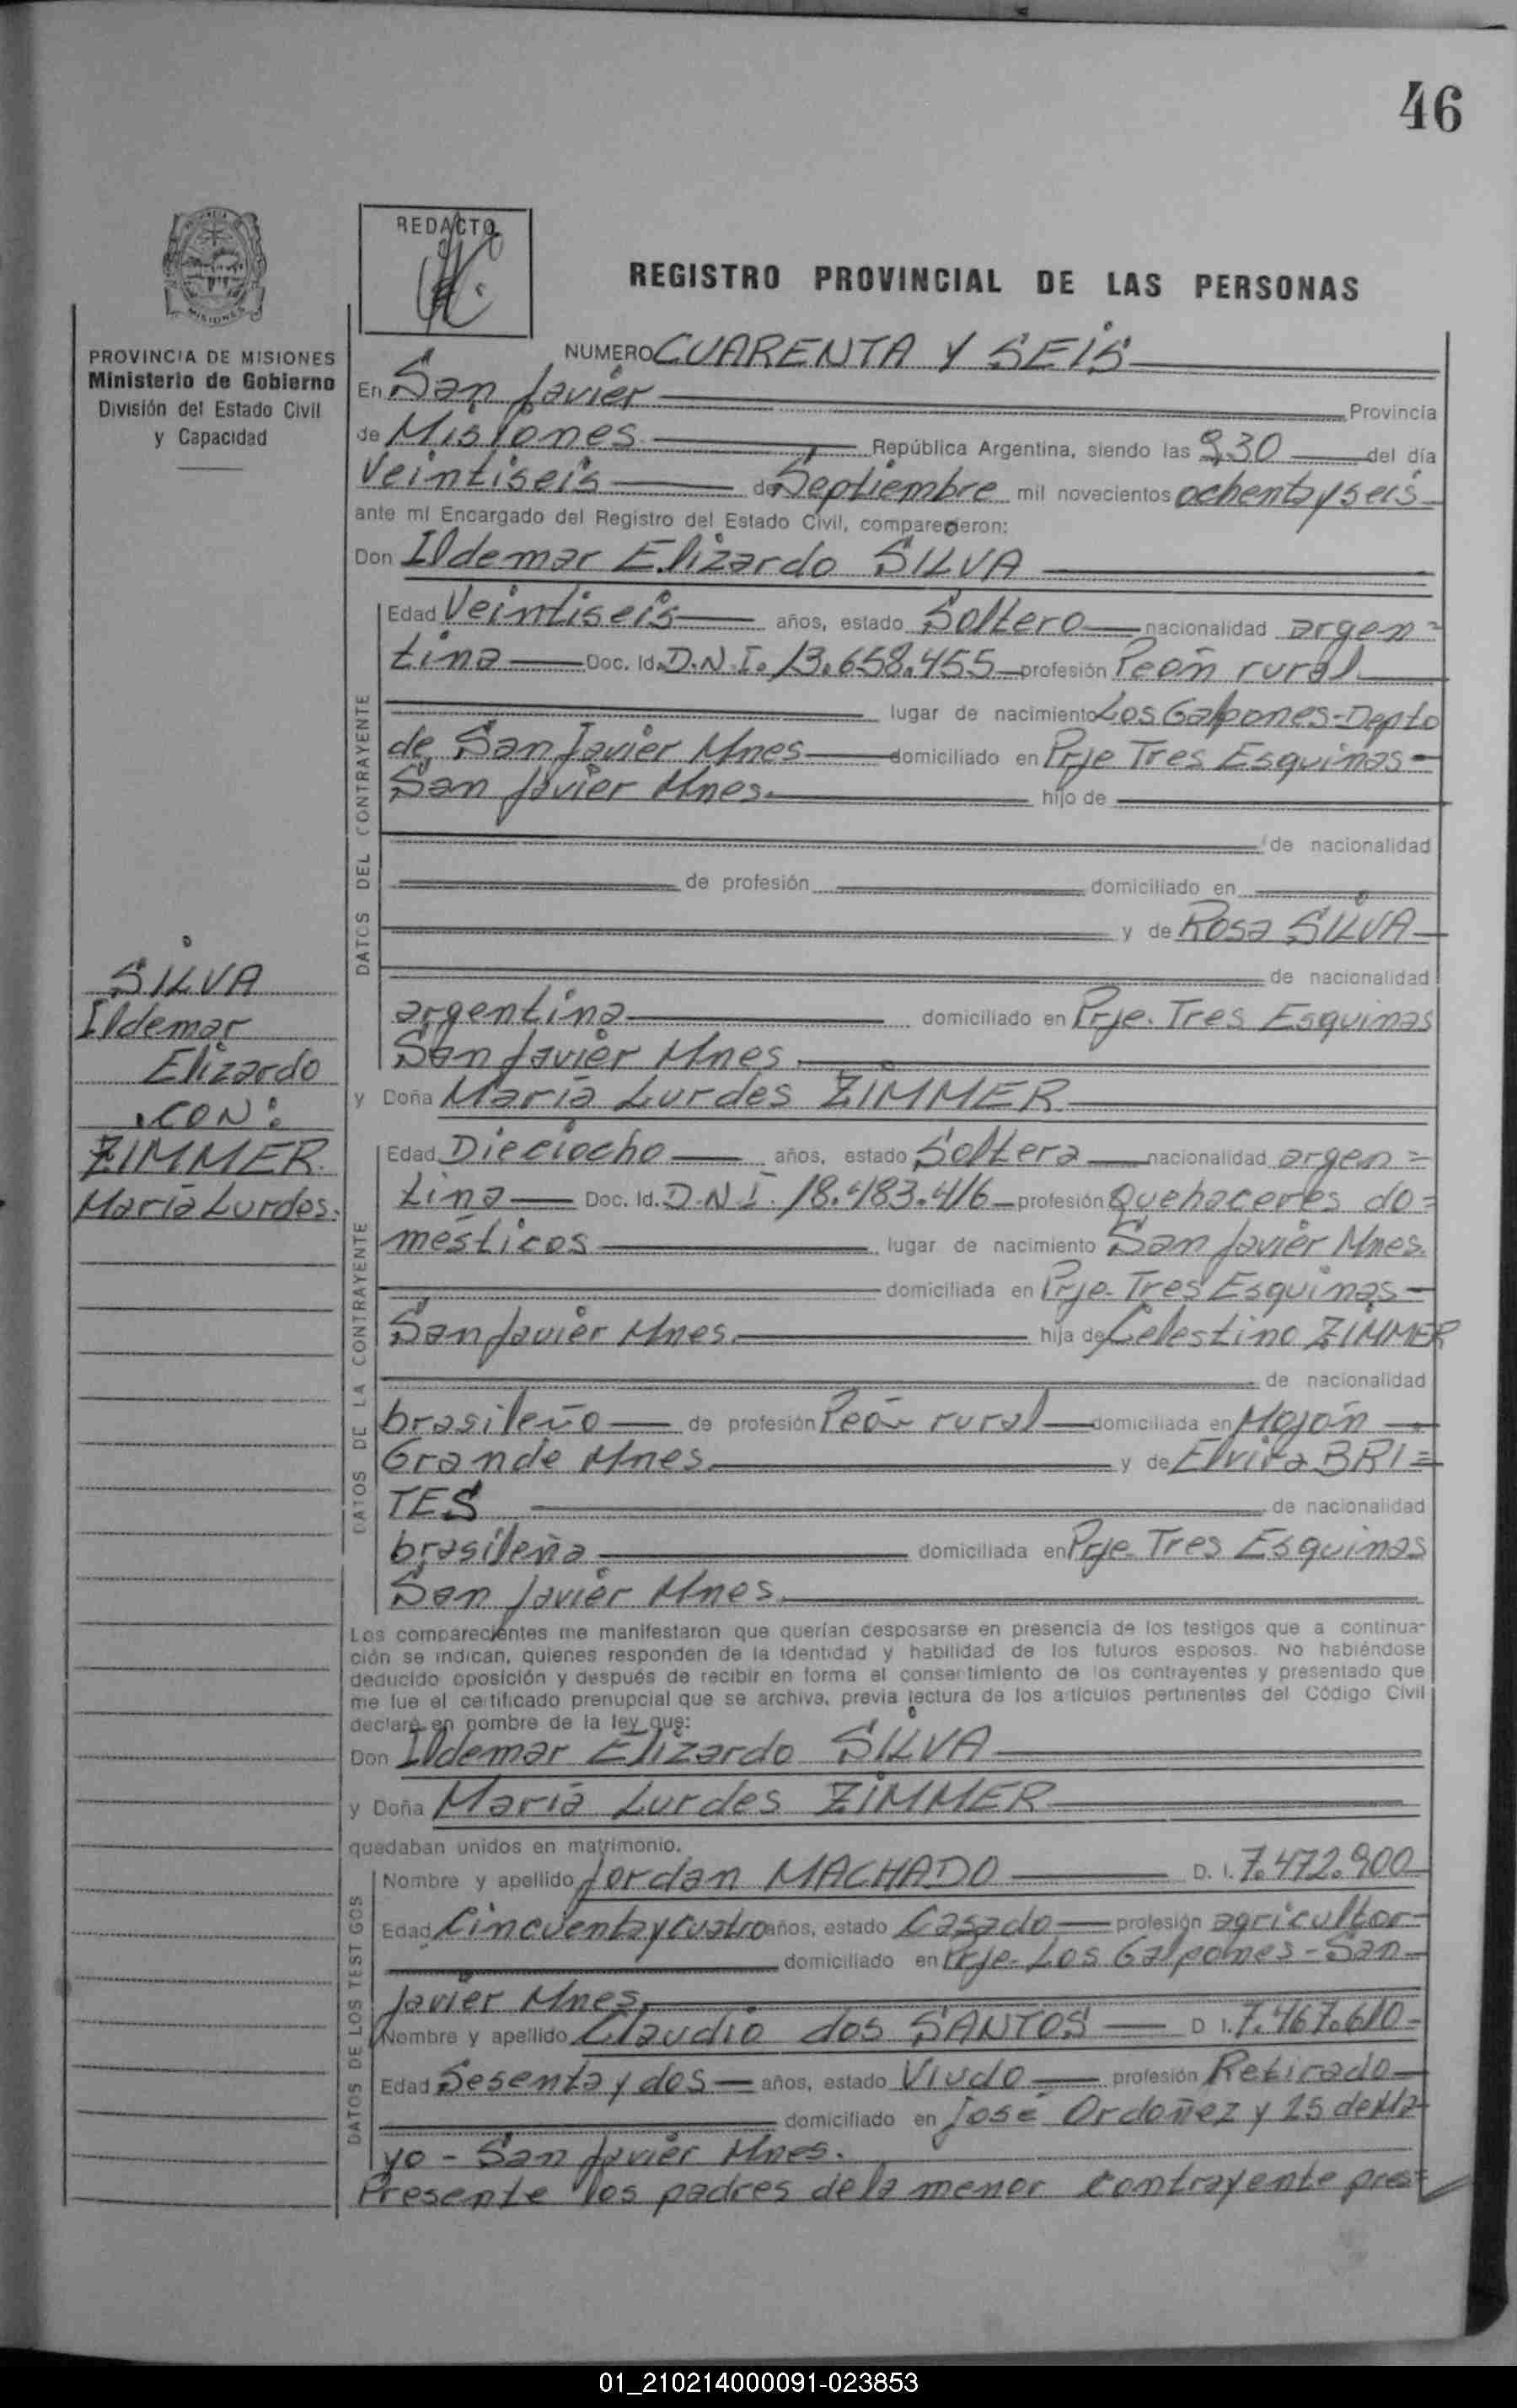 46
REDACTO
REGISTRO PROVINCIAL DE LAS PERSONAS
MISIONES
PROVINCIA DE MISIONES
Ministerio de Gobierno
División del Estado Civil
y Capacidad
SILVA
Ildemar
Elizardo
CON:
ZIMMER
María Lurdes.
NUMERO CUARENTA Y SEIS
En San Javier Provincia
de Misiones República Argentina, siendo las 9,30 del día
Veintiseis de Septiembre mil novecientos ochenta y seis
ante mí Encargado del Registro del Estado Civil, comparecieron:
Don Ildemar Elizardo SILVA
DATOS DEL CONTRAYENTE
Edad Veintiseis años, estado Soltero nacionalidad argen=
tina Doc. Id. D.N.I. 13.658.455 profesión Peón rural
lugar de nacimiento Los Galpones-Depto
de San Javier Mnes domiciliado en Prje Tres Esquinas-
San Javier Mnes. hijo de
de nacionalidad
de profesión domiciliado en
y de Rosa SILVA
de nacionalidad
argentina domiciliado en Prje. Tres Esquinas
San Javier Mnes.
y Doña María Lurdes ZIMMER
DATOS DE LA CONTRAYENTE
Edad Dieciocho años, estado Soltera nacionalidad argen=
tina Doc. Id. D.N.I. 18.483.416 profesión Quehaceres do=
mésticos lugar de nacimiento San Javier Mnes.
domiciliada en Prje. Tres Esquinas-
San Javier Mnes. hija de Celestino ZIMMER
de nacionalidad
brasileño de profesión Peón rural domiciliada en Mojón
Grande Mnes. y de Elvira BRI=
TES de nacionalidad
brasileña domiciliada en Prje. Tres Esquinas
San Javier Mnes.
Los comparecientes me manifestaron que querían desposarse en presencia de los testigos que a continua-
ción se indican, quienes responden de la identidad y habilidad de los futuros esposos. No habiéndose
deducido oposición y después de recibir en forma el consentimiento de los contrayentes y presentado que
me fue el certificado prenupcial que se archiva, previa lectura de los artículos pertinentes del Código Civil
declaré en nombre de la ley que:
Don Ildemar Elizardo SILVA
y Doña María Lurdes ZIMMER
quedaban unidos en matrimonio.
DATOS DE LOS TESTIGOS
Nombre y apellido Jordan MACHADO D. I. 7.472.900
Edad Cincuenta y cuatro años, estado Casado profesión agricultor
domiciliado en Prje. Los Galpones-San
Javier Mnes.
Nombre y apellido Claudio dos SANTOS D I. 7.467.610
Edad Sesenta y dos años, estado Viudo profesión Retirado
domiciliado en José Ordoñez y 25 de Ma
yo - San Javier Mnes.
Presente los padres de la menor contrayente pres=
01_210214000091-023853